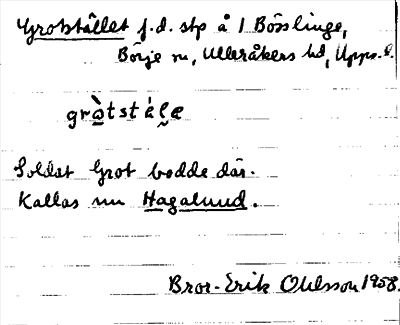 Grotstället f.d. stp å 1 Bösslinge,
Börje sn, Ulleråkers hd, Upps. l.
grò̱tstálæ
Soldat Grot bodde där.
Kallas nu Hagalund.
Bror-Erik Ohlsson 1958.